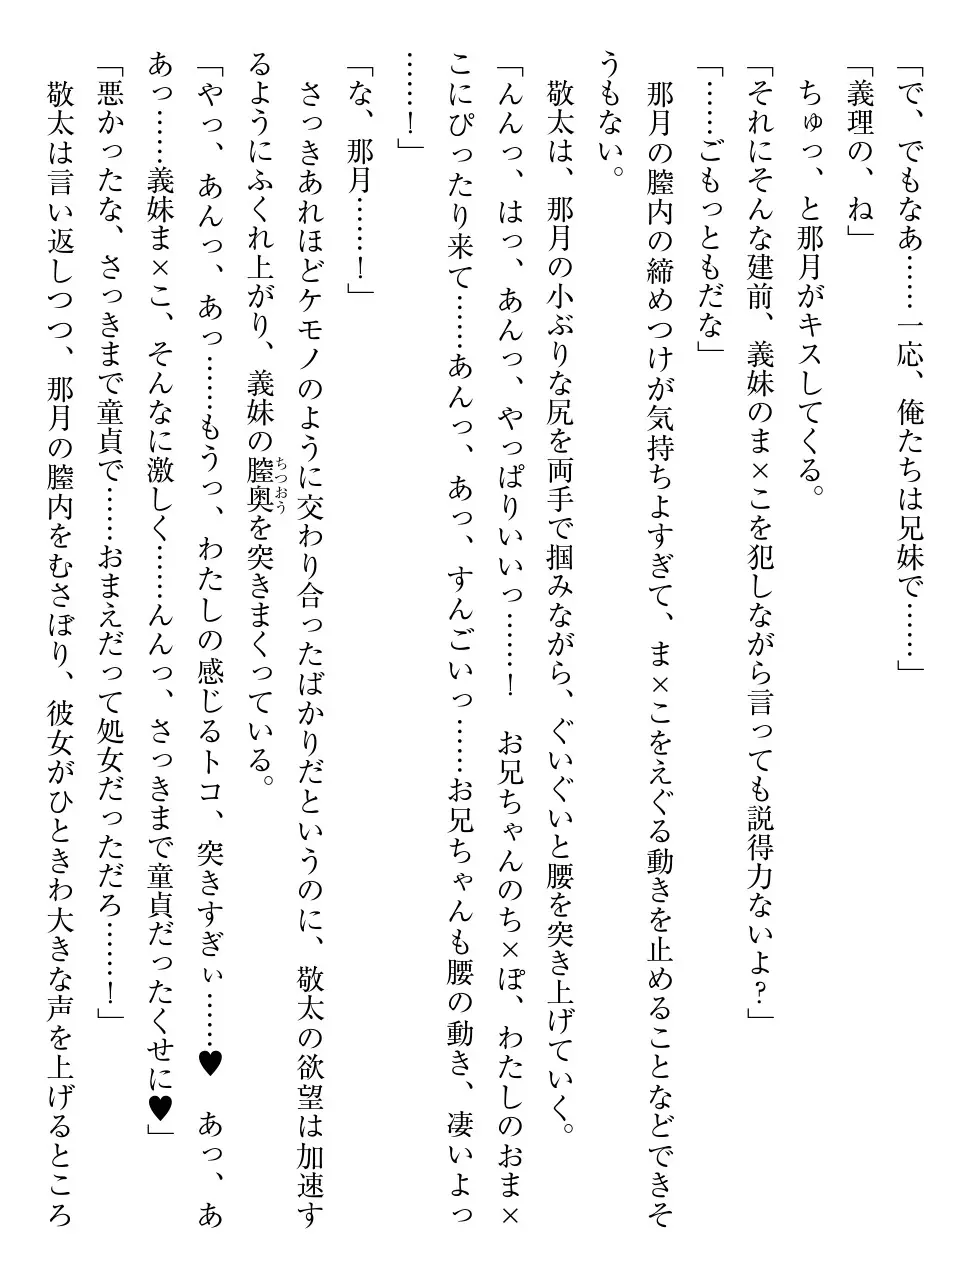 「で、でもなあ……一応、俺たちは兄妹で……」
「義理の、ね」
　ちゅっ、と那月がキスしてくる。
「それにそんな建前、義妹のま×こを犯しながら言っても説得力ないよ？」
「……ごもっともだな」
　那月の膣内の締めつけが気持ちよすぎて、ま×こをえぐる動きを止めることなどできそ
うもない。
　敬太は、那月の小ぶりな尻を両手で掴みながら、ぐいぐいと腰を突き上げていく。
「んんっ、はっ、あんっ、やっぱりいいっ……！　お兄ちゃんのち×ぽ、わたしのおま×
こにぴったり来て……あんっ、あっ、すんごいっ……お兄ちゃんも腰の動き、凄いよっ
……！」
「な、那月……！」
　さっきあれほどケモノのように交わり合ったばかりだというのに、敬太の欲望は加速す
るようにふくれ上がり、義妹の膣奥ちつおうを突きまくっている。
「やっ、あんっ、あっ……もうっ、わたしの感じるトコ、突きすぎぃ……♥　あっ、あ
あっ……義妹ま×こ、そんなに激しく……んんっ、さっきまで童貞だったくせに♥」
「悪かったな、さっきまで童貞で……おまえだって処女だっただろ……！」
　敬太は言い返しつつ、那月の膣内をむさぼり、彼女がひときわ大きな声を上げるところ